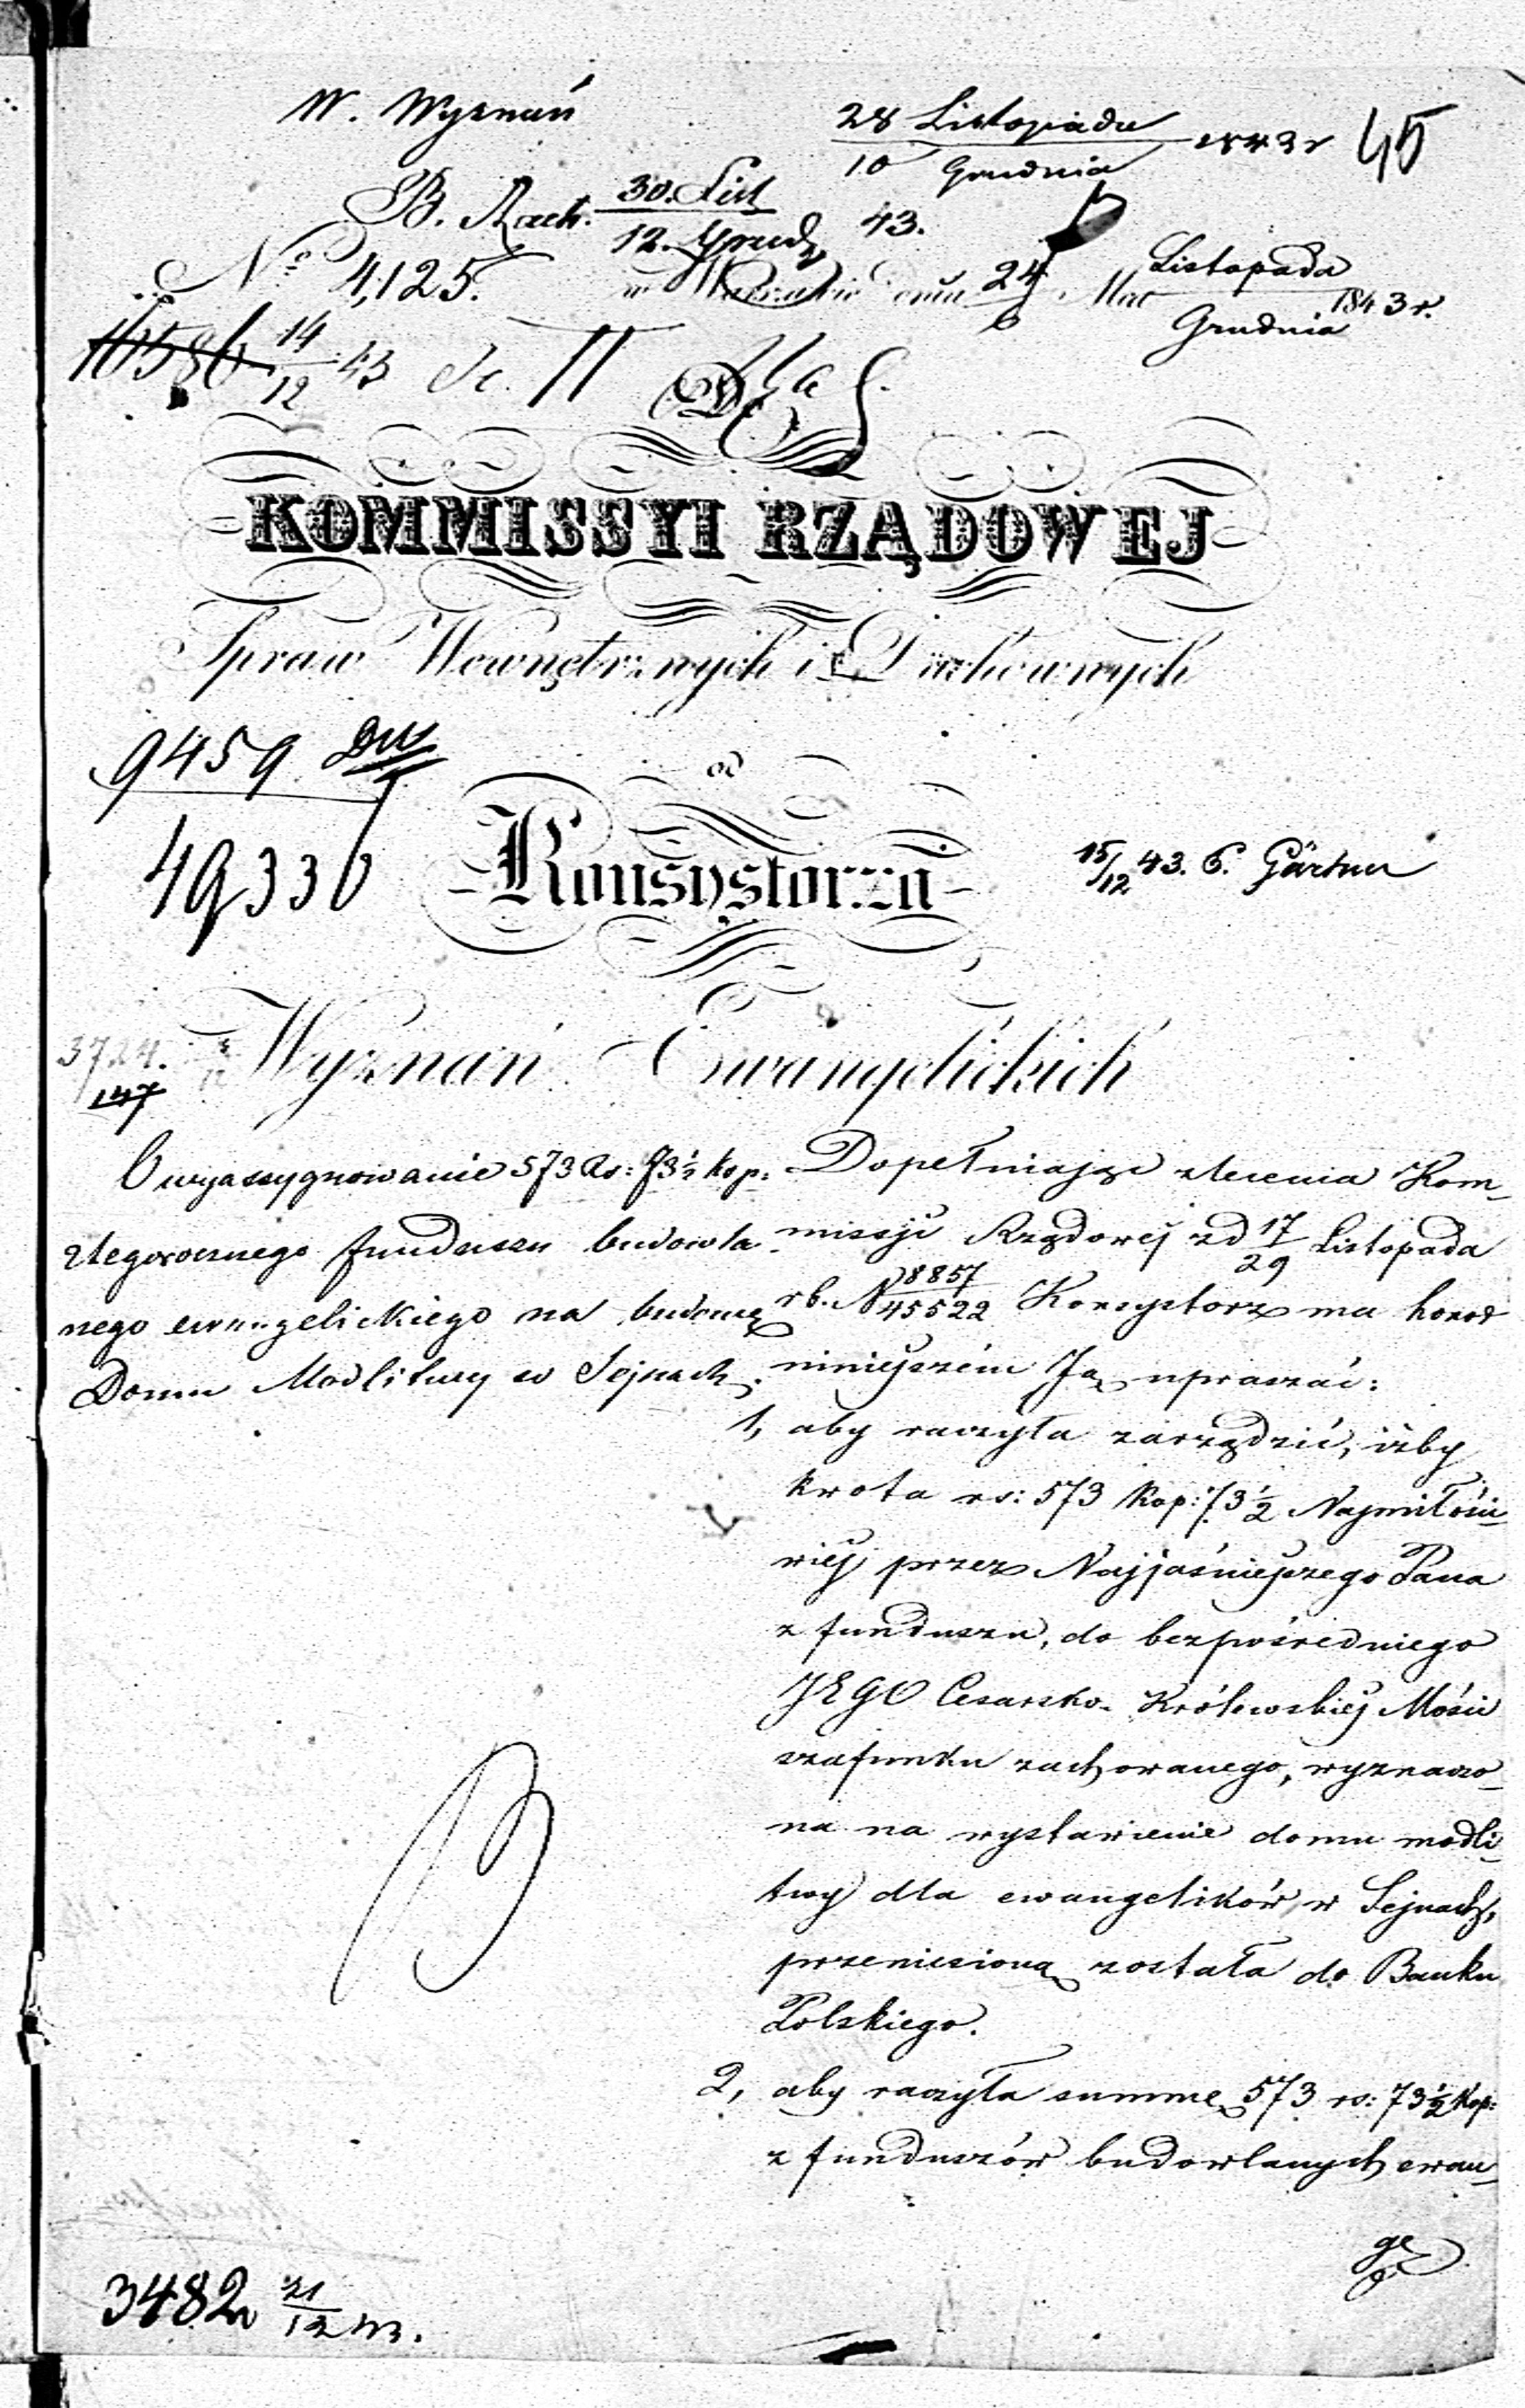 W. Wyznań
28 Listopada
10 Grudnia 1843 r
45
B. Rach. 30. List
12. Grud 43.
No 4,125.
w Warszawie dnia 24 Listopada
6 Grudnia 1843 r.
16586 14
12 43 II
Do
KOMMISSYI RZĄDOWEJ
Spraw Wewnętrznych i Duchownych
9459
49336
od
Konsystorza
15/12 43. Gärtner
3724.
147
Wyznań Ewangelickich
O wyassygnowanie 573 Rs: 73½ kop:
ztegorocznego funduszu budowla
nego ewangelickiego na budowę
Domu Modlitwy w Sejnach.
Dopełniając zlecenia Kom-
missji Rządowej zd 17
29 Listopada
rb. N 8857
45522 Konsystorz ma honor
niniejszém Ją upraszać:
1, aby raczyła zarządzić, iżby
kwota rs: 573 Kop: 73½ Najmiłości-
wiej przez Najjaśniejszego Pana
z funduszu, do bezpośredniego
JEGO Cesarsko-Królewskiej Mości
szafunku zachowanego, wyznaczo-
na na wystawienie domu modli-
twy dla ewangelików w Sejnach,
przeniesioną została do Banku
Polskiego.
2, aby raczyła summę 573 rs: 73½ Kop:
z funduszów budowlanych ewan-
ge
3482 21
12 43.